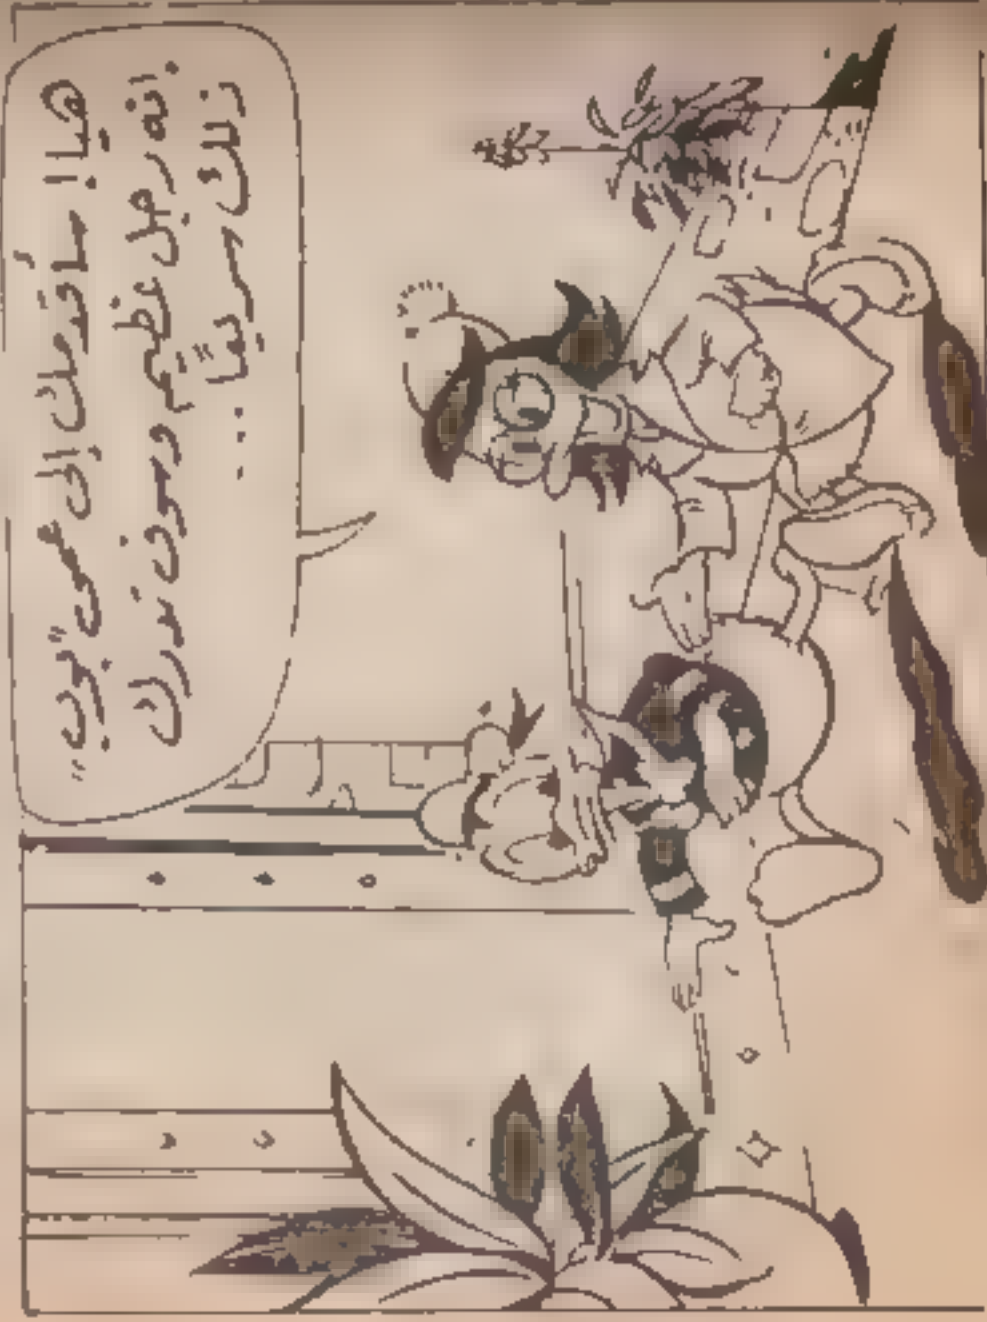 هيا! سأقدمك إلى عمي "بون"
.انه رجل عظيم وسوف تدرك
ذلك سريعًا...